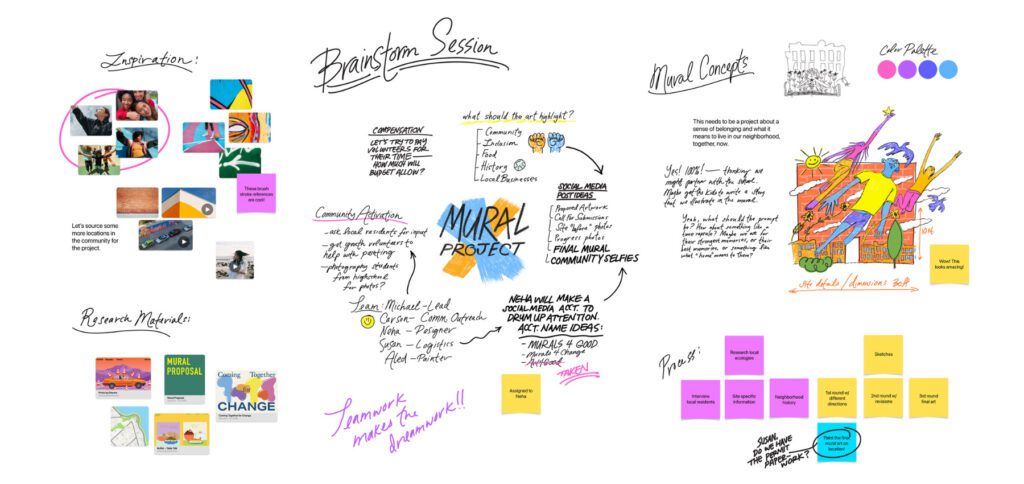 Inspiration:
These brush
stroke references
are cool!
Let's source some
more locations in
the community for
the project.
Research Materials:
MURAL
PROPOSAL
Coming Together
for
CHANGE
Coming Together for Change
Brainstorm Session
what should the art highlight?
- Community
- Inclusion
- Food
- History
- Local Businesses
COMPENSATION
LET'S TRY TO PAY
VOLUNTEERS FOR
THEIR TIME —
HOW MUCH WILL
BUDGET ALLOW?
Community Activation
- ask local residents for input
- get youth volunteers to
help with painting
- photography students
from highschool
for photos?
MURAL
PROJECT
SOCIAL MEDIA
POST IDEAS
Proposed Artwork
Call For Submissions
Site "before" photos
Progress photos
FINAL MURAL
COMMUNITY SELFIES
Team: Michael - Lead
Carson - Comm Outreach
Neha - Designer
Susan - Logistics
Aled - Painter
NEHA WILL MAKE A
SOCIAL MEDIA ACCT. TO
DRUM UP ATTENTION.
ACCT. NAME IDEAS:
- MURALS 4 GOOD
- Murals 4 Change
- Art4Good
TAKEN
Teamwork
makes the
dreamwork!!
Assigned to
Neha
Mural Concepts
Color Palette
This needs to be a project about a
sense of belonging and what it
means to live in our neighborhood,
together, now.
Yes! 100%! — thinking we
might partner with the school.
Maybe get the kids to write a story
that we illustrate in the mural.
Yeah, what should the prompt
be? How about something like
Maybe we ask for
their strongest memories, or their
best memories, or something like
what "home" means to them?
10ft
Site details / dimensions 30ft
Wow! This
looks amazing!
Process:
Research local
ecologies
Sketches
Interview
local residents
Site specific
information
Neighborhood
history
1st round w/
different
directions
2nd round w/
revisions
3rd round
final art
SUSAN,
DO WE HAVE
THE PERMIT
PAPER-
WORK?
Paint the final
mural art on
location!